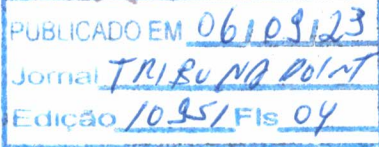 PUBLICADO EM 06/09/23
Jornal TRIBUNA DO INT
Edição 10951 Fls 04